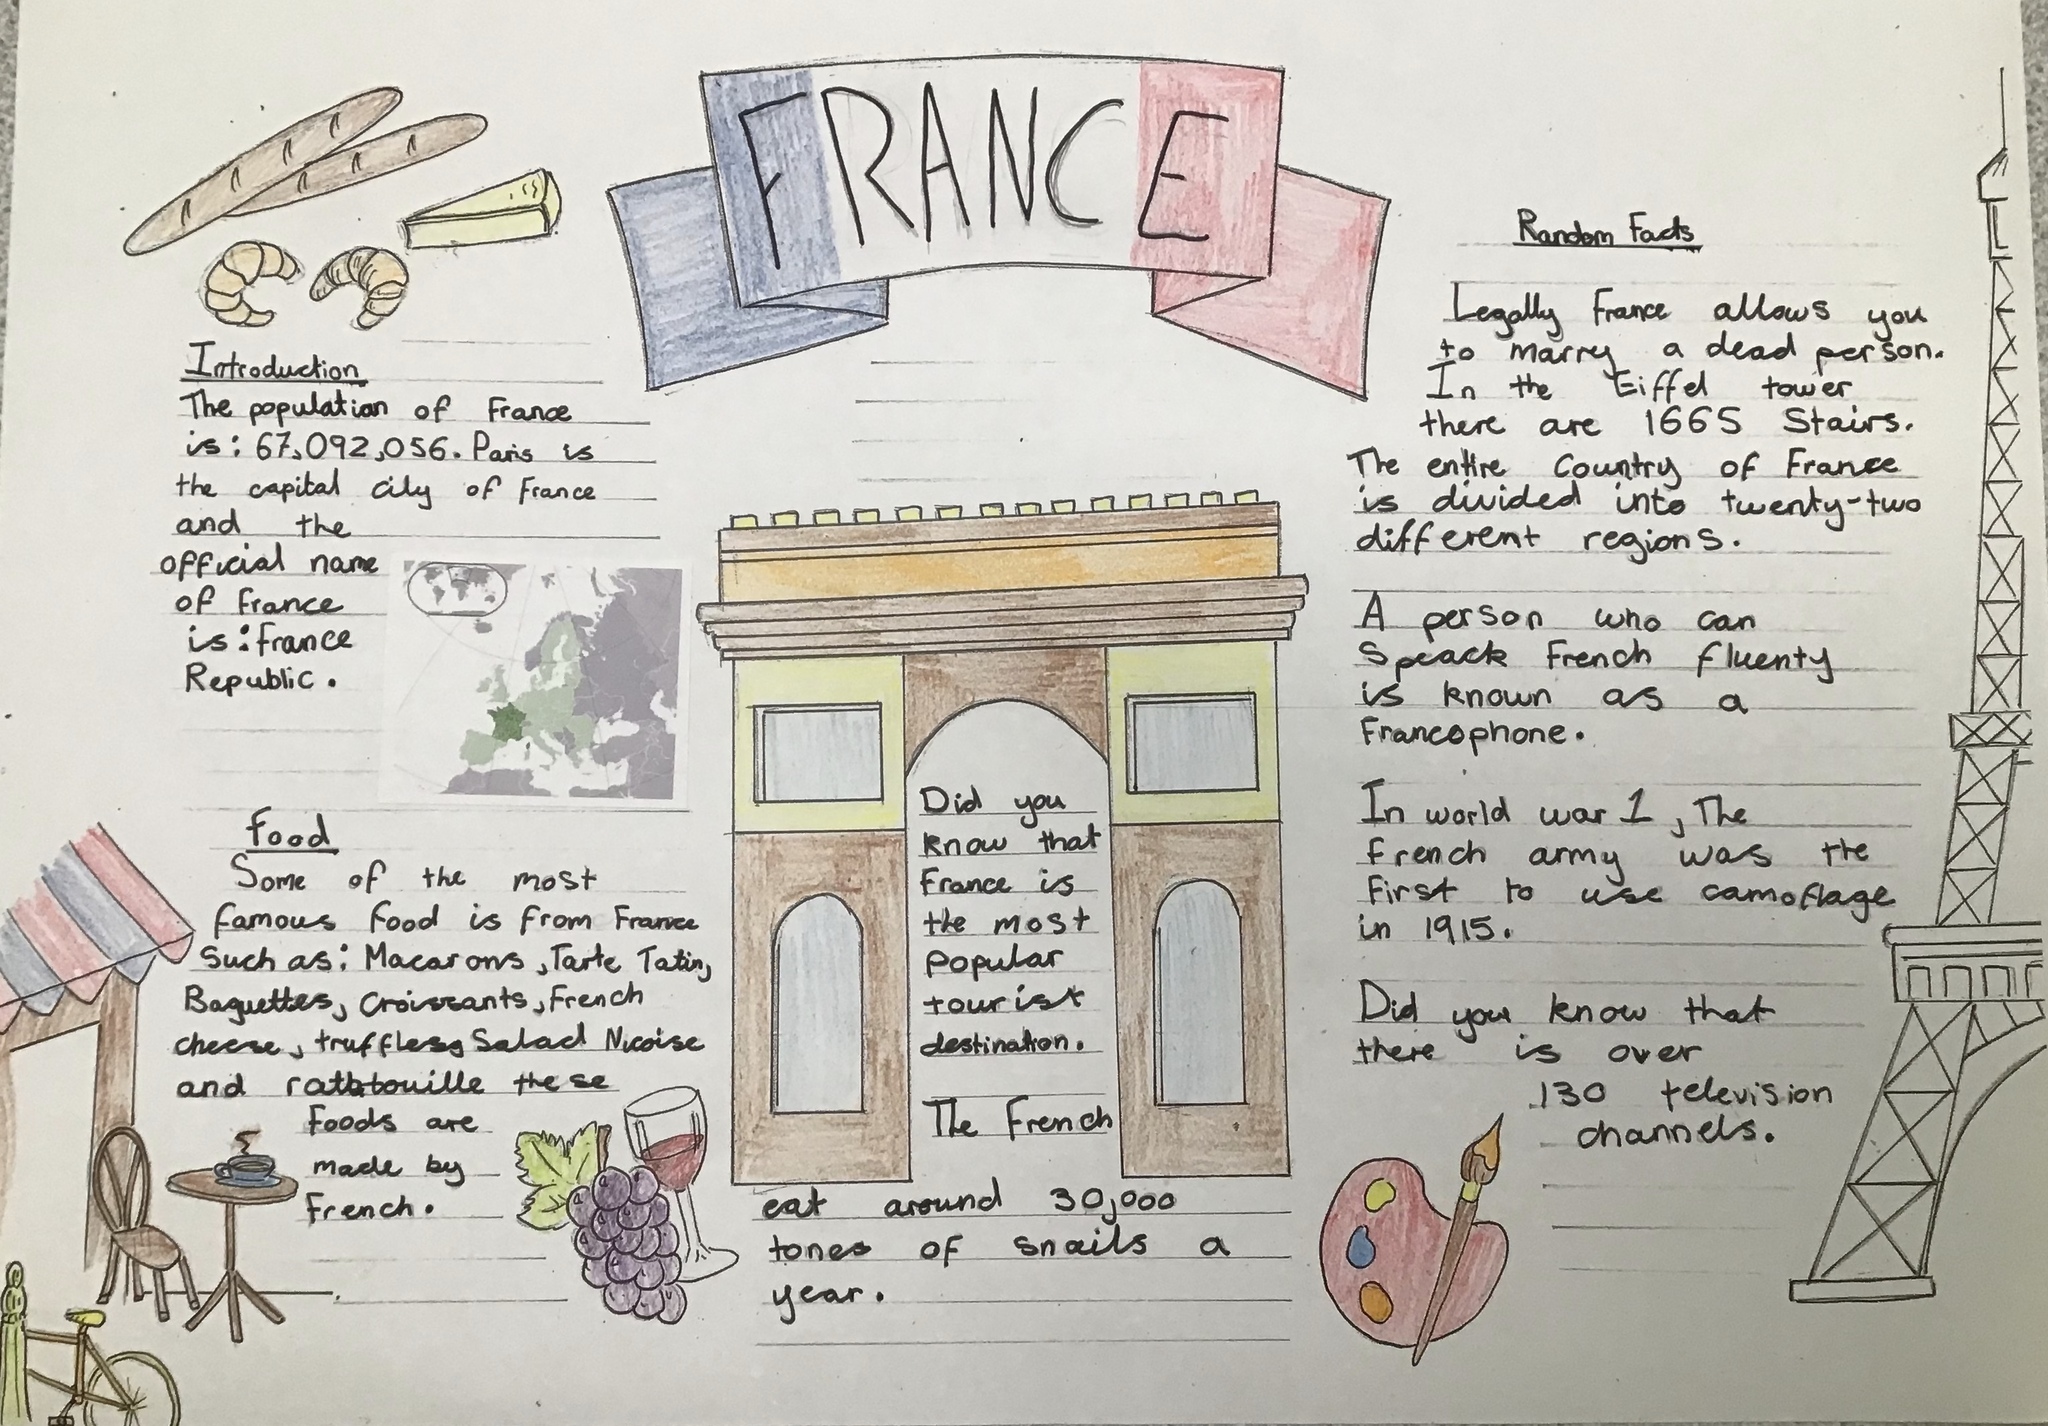 FRANCE
Introduction
The population of France
is: 67,092,056. Paris is
the capital city of France
and the
official name
of France
is: France
Republic.
Food
Some of the most
famous food is from France
Such as: Macarons, Tarte Tatin,
Baguettes, Croissants, French
cheese, truffles, Salad Nicoise
and ratbtouille these
Foods are
made by
French.
Did you
know that
France is
the most
popular
tourist
destination.
The French
eat around 30,000
tones of snails a
year.
Random Facts
Legally France allows you
to marry a dead person.
In the Eiffel tower
there are 1665 Stairs.
The entire Country of France
is divided into twenty-two
different regions.
A person who can
Speack French fluenty
is known as a
Francophone.
In world war 1, The
French army was the
First to use camoflage
in 1915.
Did you know that
there is over
130 television
channels.